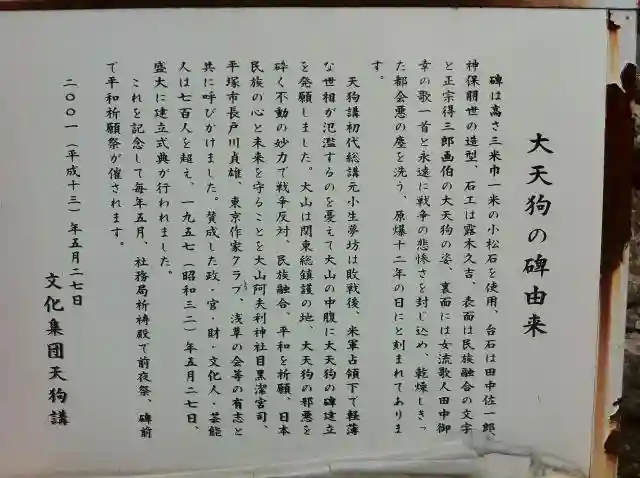 大天狗の碑由来
碑は高さ三米巾一米の小松石を使用、台石は田中佐一郎、
神保朋世の造型、石工は露木久吉、表面は民族融合の文字
と正宗得三郎画伯の大天狗の姿、裏面には女流歌人田中御
幸の歌一首と永遠に戦争の悲惨さを封じ込め、乾燥しきっ
た都会悪の塵を洗う、原爆十二年の日にと刻まれてありま
す。
天狗講初代総講元小生夢坊は敗戦後、米軍占領下で軽薄
な世相が氾濫するのを憂えて大山の中腹に大天狗の碑建立
を発願しました。大山は関東総鎮護の地、大天狗の邪悪を
砕く不動の妙力で戦争反対、民族融合、平和を祈願、日本
民族の心と未来を守ることを大山阿夫利神社目黒潔宮司、
平塚市長戸川貞雄、東京作家クラブ、浅草の会等の有志と
共に呼びかけました。賛成した政・官・財・文化人・芸能
人は七百人を超え、一九五七（昭和三二）年五月二七日、
盛大に建立式典が行われました。
これを記念して毎年五月、社務局祈祷殿で前夜祭、碑前
で平和祈願祭が催されます。
二〇〇一（平成十三）年五月二七日
文化集団天狗講